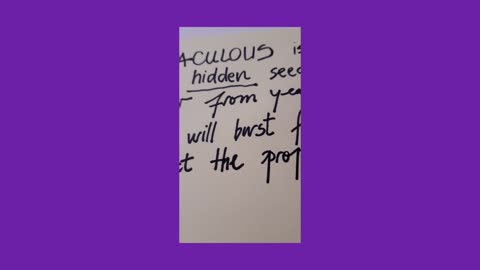 ACULOUS is
hidden see
from yea
will burst f
t the prop